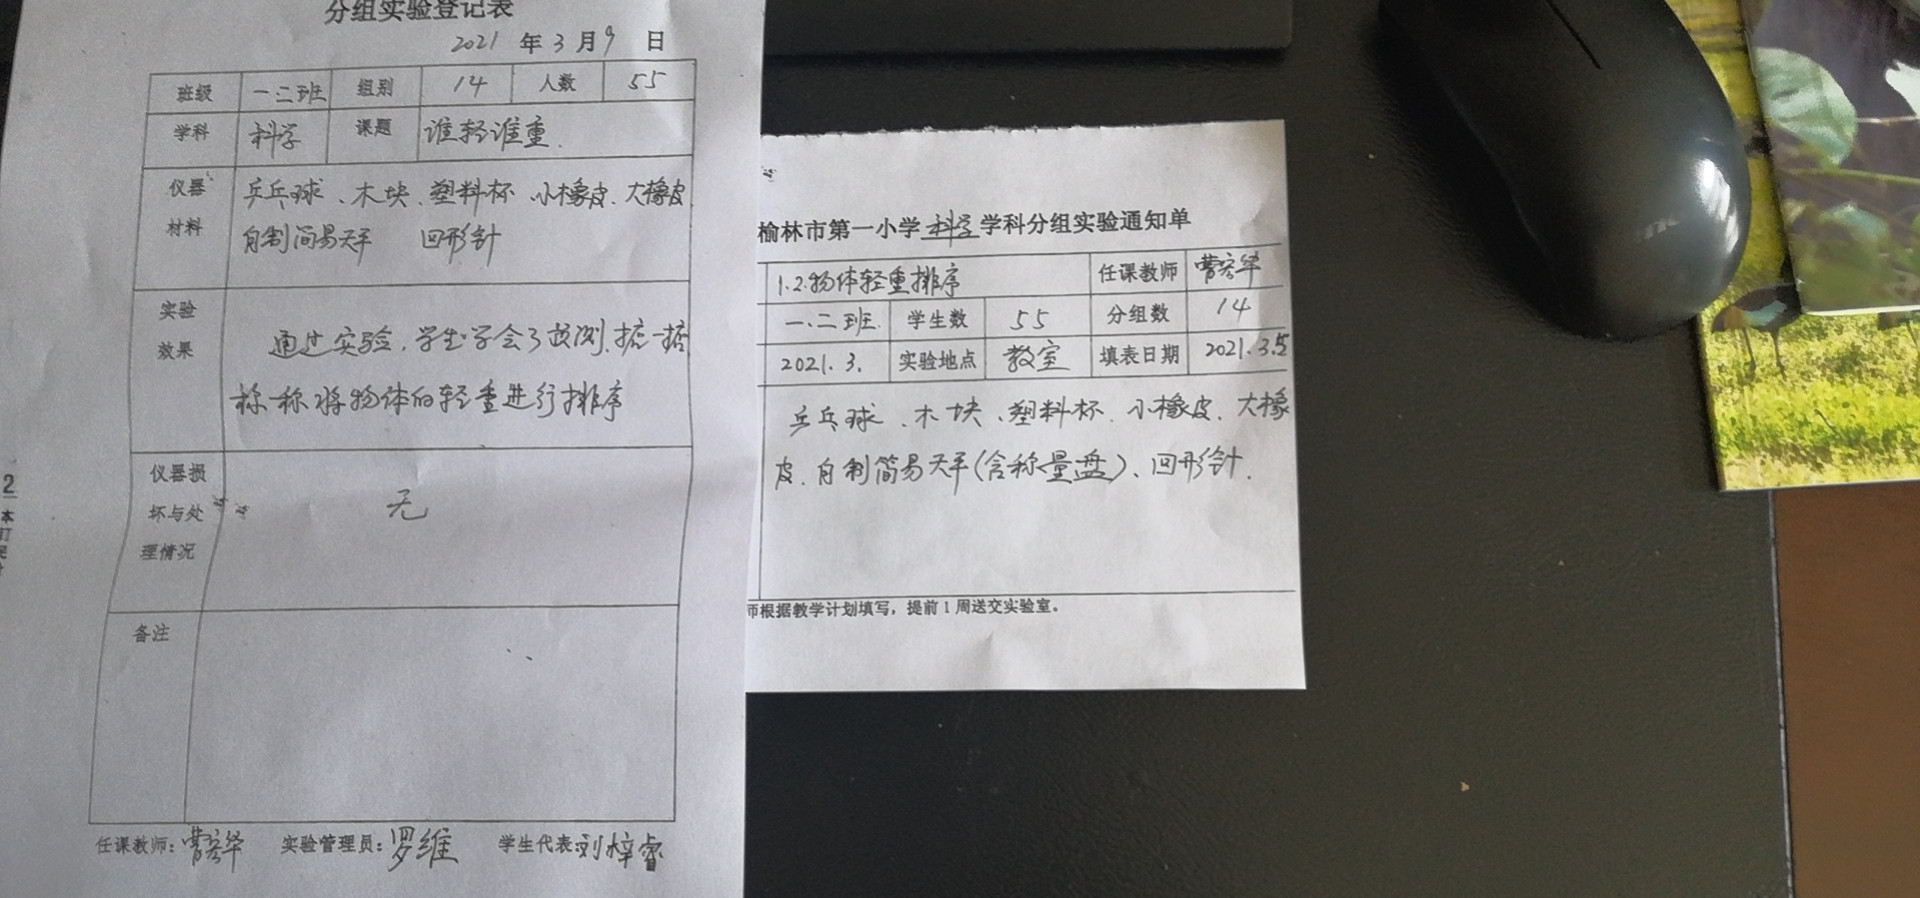 分组实验登记表
2021 年 3 月 9 日
班级 一.二班 组别 14 人数 55
学科 科学 课题 谁轻谁重.
仪器材料 乒乓球、木块、塑料杯、小橡皮、大橡皮
自制简易天平 回形针
实验效果 通过实验,学生学会了预测、掂一掂
称一称将物体的轻重进行排序
仪器损坏与处理情况 无
备注
任课教师: 曹宏华 实验管理员: 罗维 学生代表: 刘梓睿
榆林市第一小学科学学科分组实验通知单
1.2.物体轻重排序 任课教师 曹宏华
一.二班. 学生数 55 分组数 14
2021.3. 实验地点 教室 填表日期 2021.3.5
乒乓球、木块、塑料杯、小橡皮、大橡
皮、自制简易天平(含称量盘)、回形针.
师根据教学计划填写,提前1周送交实验室。
2
本